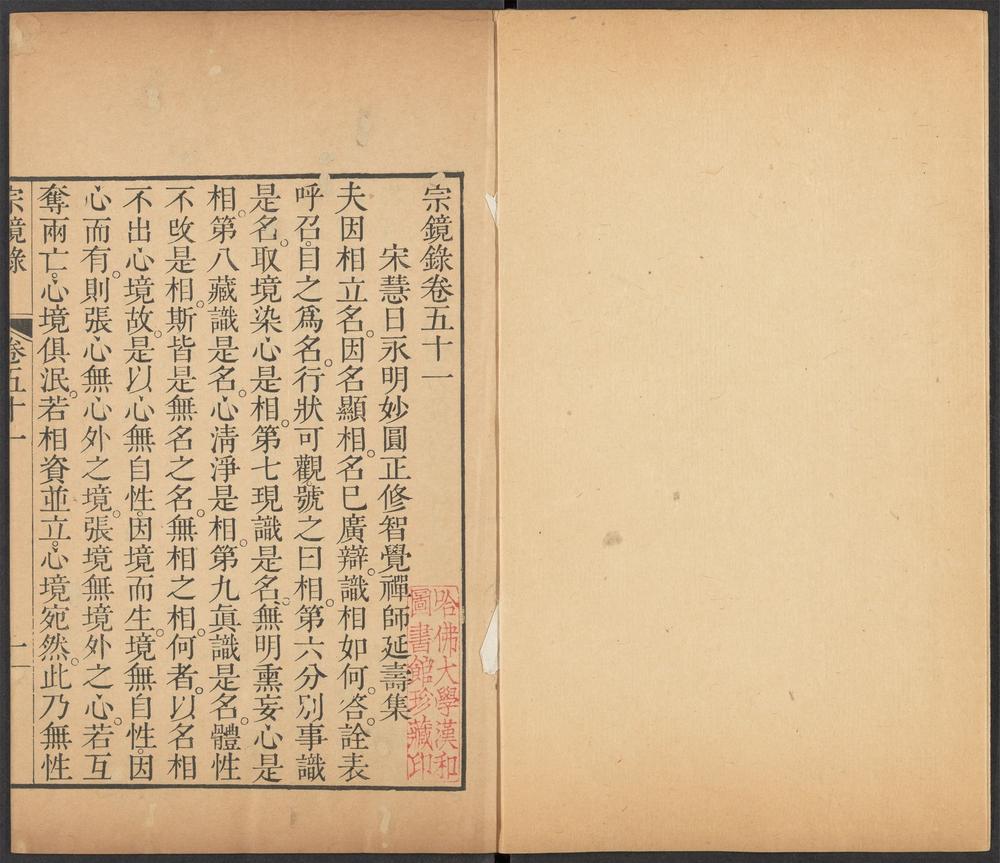 宗鏡錄卷五十一
宋慧日永明妙圓正修智覺禪師延壽集
夫因相立名。因名顯相。名已廣辯。識相如何。答。詮表
呼召。目之爲名。行狀可觀。號之曰相。第六分別事識
是名。取境染心是相。第七現識是名。無明熏妄心是
相。第八藏識是名。心淸淨是相。第九眞識是名。體性
不改是相。斯皆是無名之名。無相之相。何者。以名相
不出心境故。是以心無自性。因境而生。境無自性。因
心而有。則張心無心外之境。張境無境外之心。若互
奪兩亡。心境俱泯。若相資並立。心境宛然。此乃無性
宗鏡錄 卷五十一 一
哈佛大學漢和
圖書館珍藏印